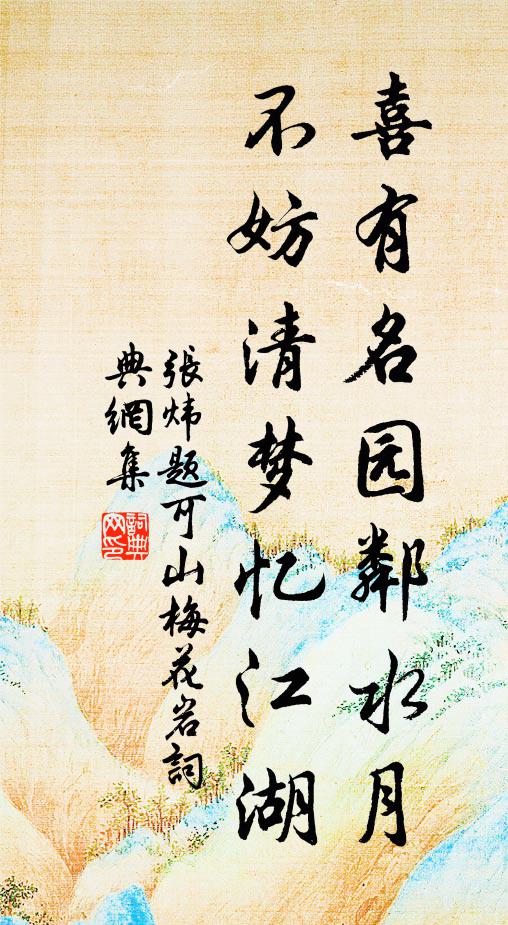 喜有名园鄰水月
不妨清梦忆江湖
張炜题可山梅花岩詞
典網集
詞典
网印